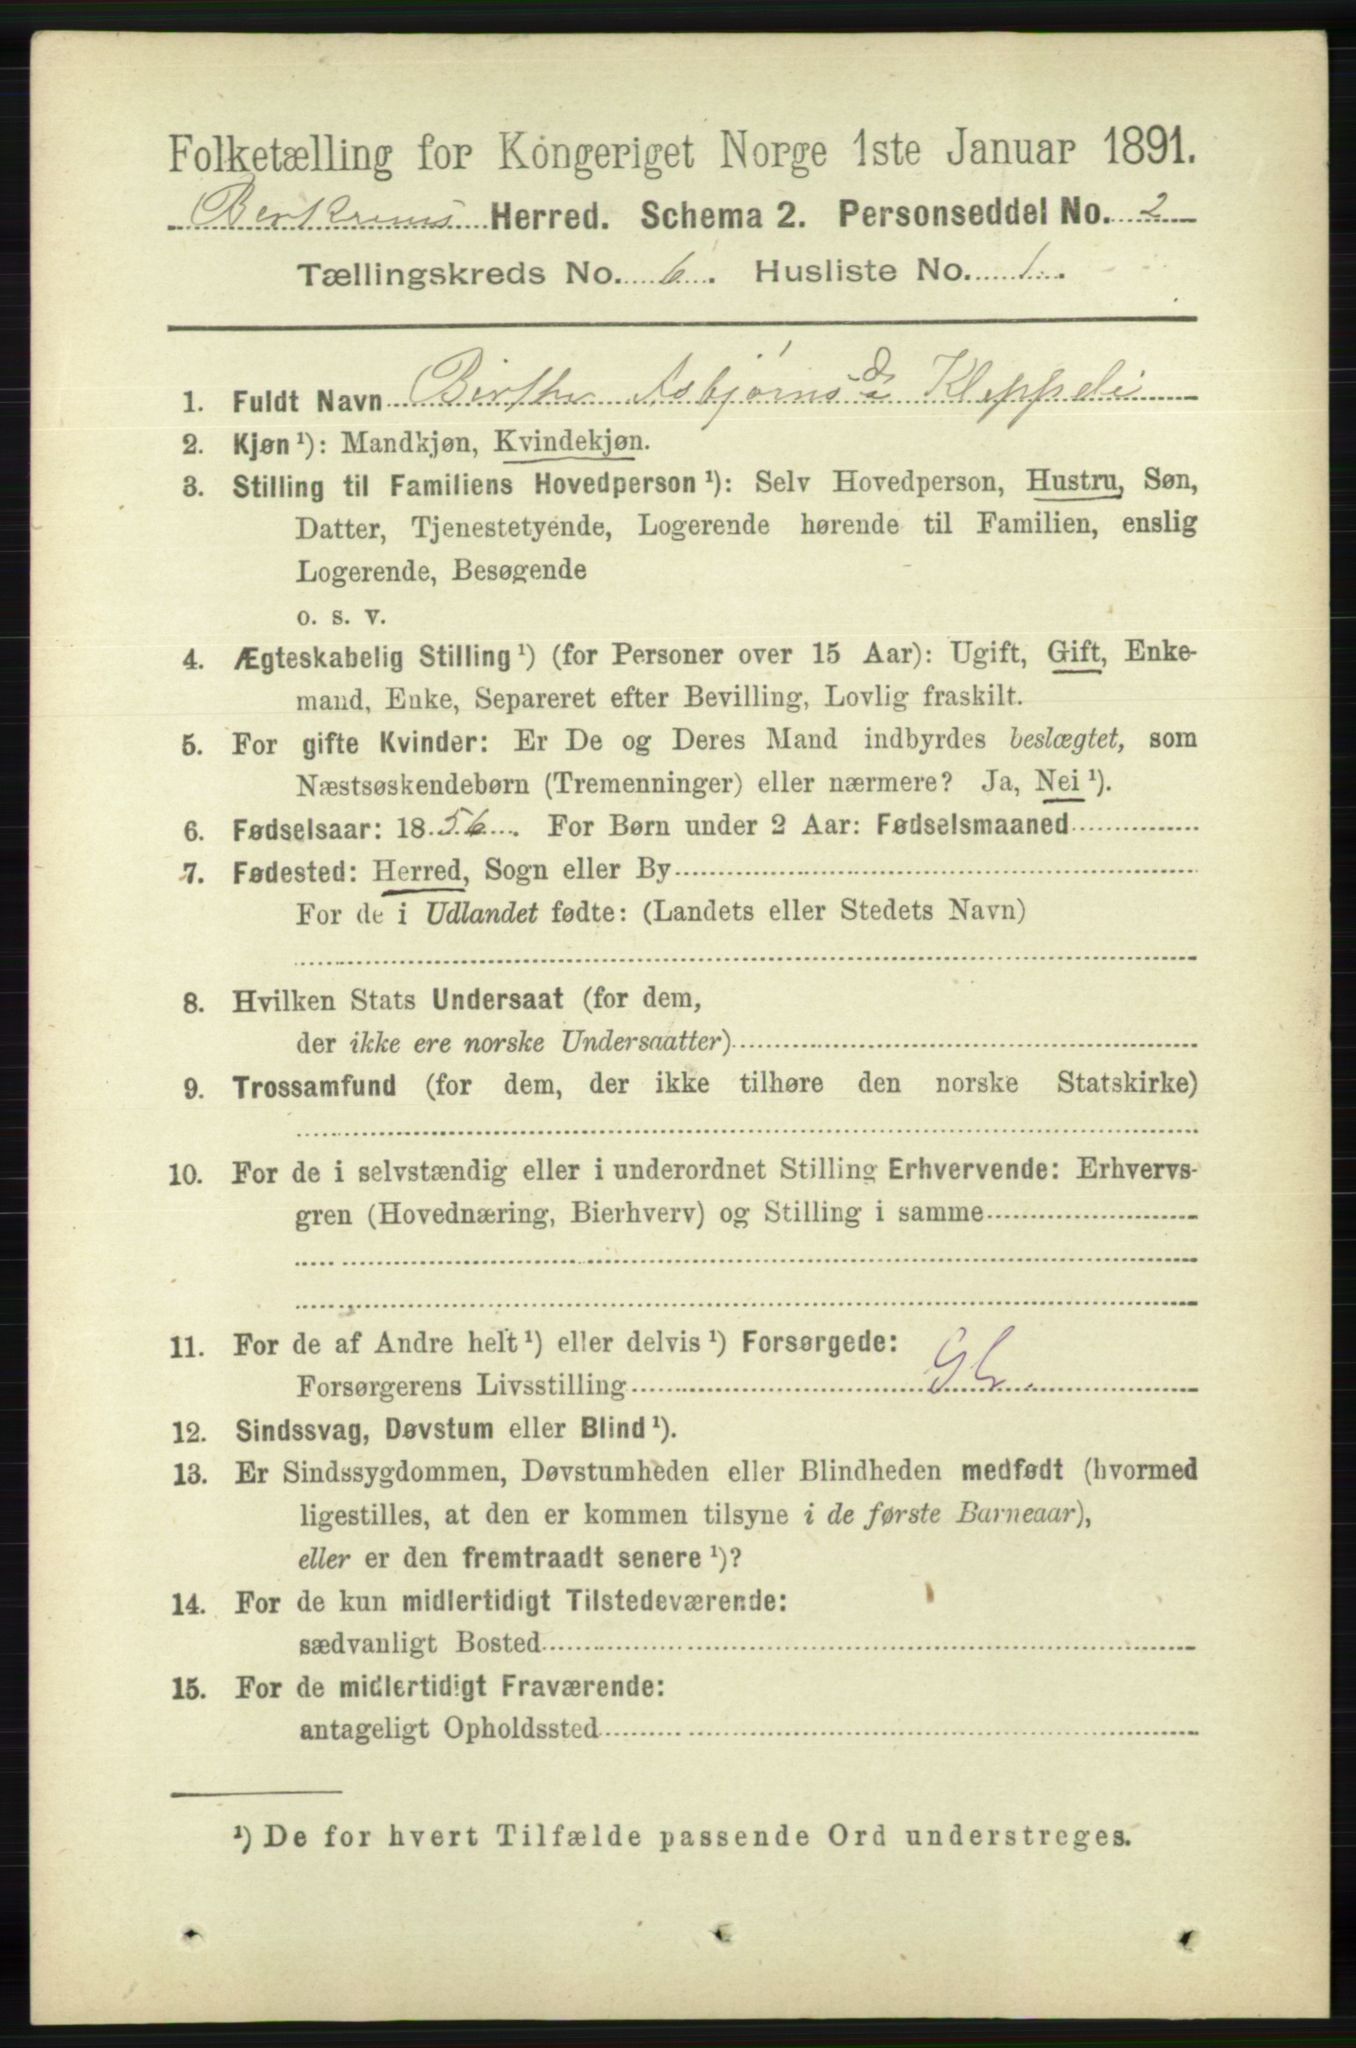 Folketælling for Kongeriget Norge 1ste Januar 1891.
Berkrems Herred. Schema 2. Personseddel No. 2
Tællingskreds No. 6. Husliste No. 1.
1. Fuldt Navn Birthe Asbjørnsd Kleppeli
2. Kjøn ¹): Mandkjøn, Kvindekjøn.
3. Stilling til Familiens Hovedperson ¹): Selv Hovedperson, Hustru, Søn,
Datter, Tjenestetyende, Logerende hørende til Familien, enslig
Logerende, Besøgende
o. s. v.
4. Ægteskabelig Stilling ¹) (for Personer over 15 Aar): Ugift, Gift, Enke-
mand, Enke, Separeret efter Bevilling, Lovlig fraskilt.
5. For gifte Kvinder: Er De og Deres Mand indbyrdes beslægtet, som
Næstsøskendebørn (Tremenninger) eller nærmere? Ja, Nei ¹).
6. Fødselsaar: 1856. For Børn under 2 Aar: Fødselsmaaned
7. Fødested: Herred, Sogn eller By
For de i Udlandet fødte: (Landets eller Stedets Navn)
8. Hvilken Stats Undersaat (for dem,
der ikke ere norske Undersaatter)
9. Trossamfund (for dem, der ikke tilhøre den norske Statskirke)
10. For de i selvstændig eller i underordnet Stilling Erhvervende: Erhvervs-
gren (Hovednæring, Bierhverv) og Stilling i samme
11. For de af Andre helt ¹) eller delvis ¹) Forsørgede:
Forsørgerens Livsstilling
12. Sindssvag, Døvstum eller Blind ¹).
13. Er Sindssygdommen, Døvstumheden eller Blindheden medfødt (hvormed
ligestilles, at den er kommen tilsyne i de første Barneaar),
eller er den fremtraadt senere ¹)?
14. For de kun midlertidigt Tilstedeværende:
sædvanligt Bosted
15. For de midlertidigt Fraværende:
antageligt Opholdssted
¹) De for hvert Tilfælde passende Ord understreges.